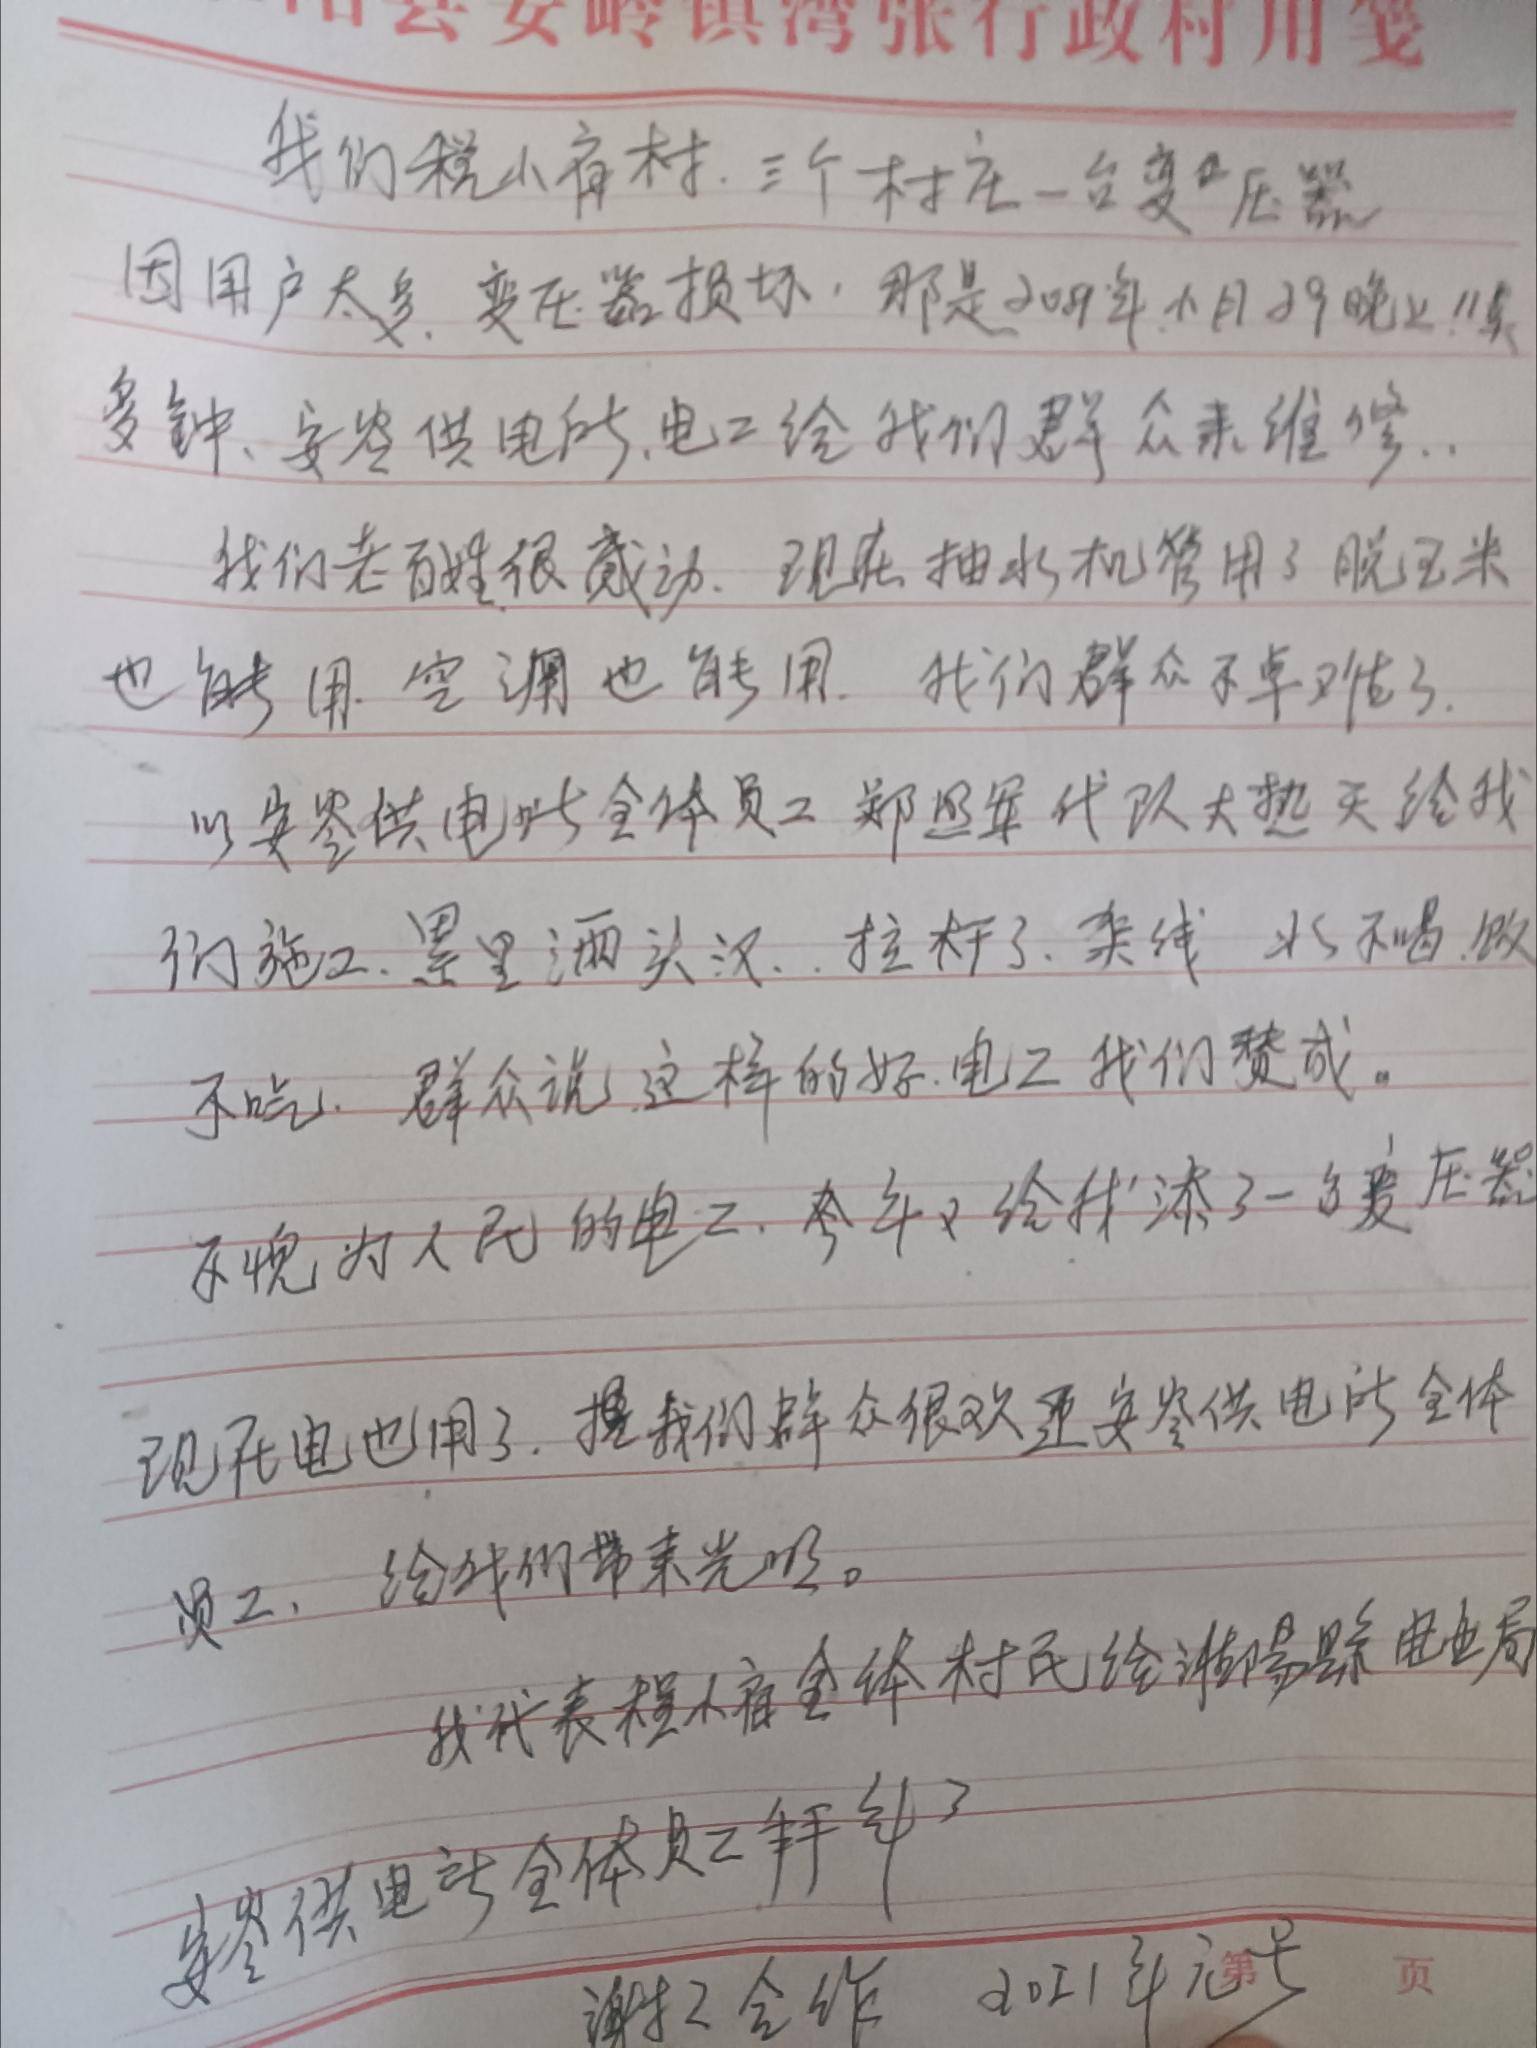 阳县安岭镇湾张行政村用笺
我们程小寨村.三个村庄一台变压器
因用户太多.变压器损坏.那是年月29晚上11点
多钟、安岺供电所.电工给我们群众来维修..
我们老百姓很感动.现在抽水机管用了脱玉米
也能用.空调也能用.我们群众不卓难了.
以安岺供电所全体员工郑照军代队大热天给我
们施工.累里洒头汉..拉杆了.架线 水不喝.饭
不吃.群众说.这样的好.电工我们赞成。
不愧为人民的电工.今年又给我添了一台变压器
现在电也用了.我们群众很欢迎安岺供电所全体
员工.给我们带来光明。
我代表程小寨全体村民给淮陽縣电业局
安岺供电所全体员工拜年了
谢工合作 2021年元号
第 页